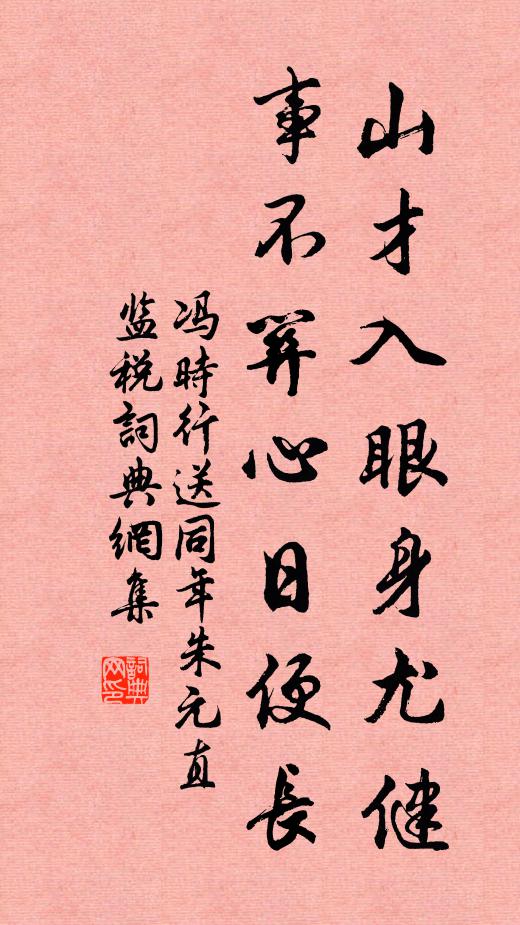 山才入眼身尤健
事不關心日便長
冯時行送同年朱元直
监税詞典網集
詞典
网印